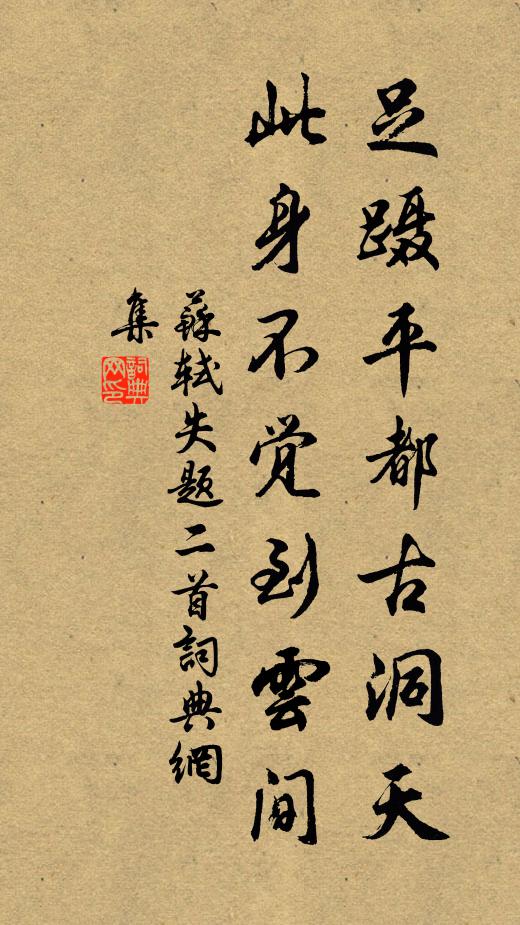 足蹑平都古洞天
此身不觉到雲间
蘇轼失题二首詞典網
集
詞典网印